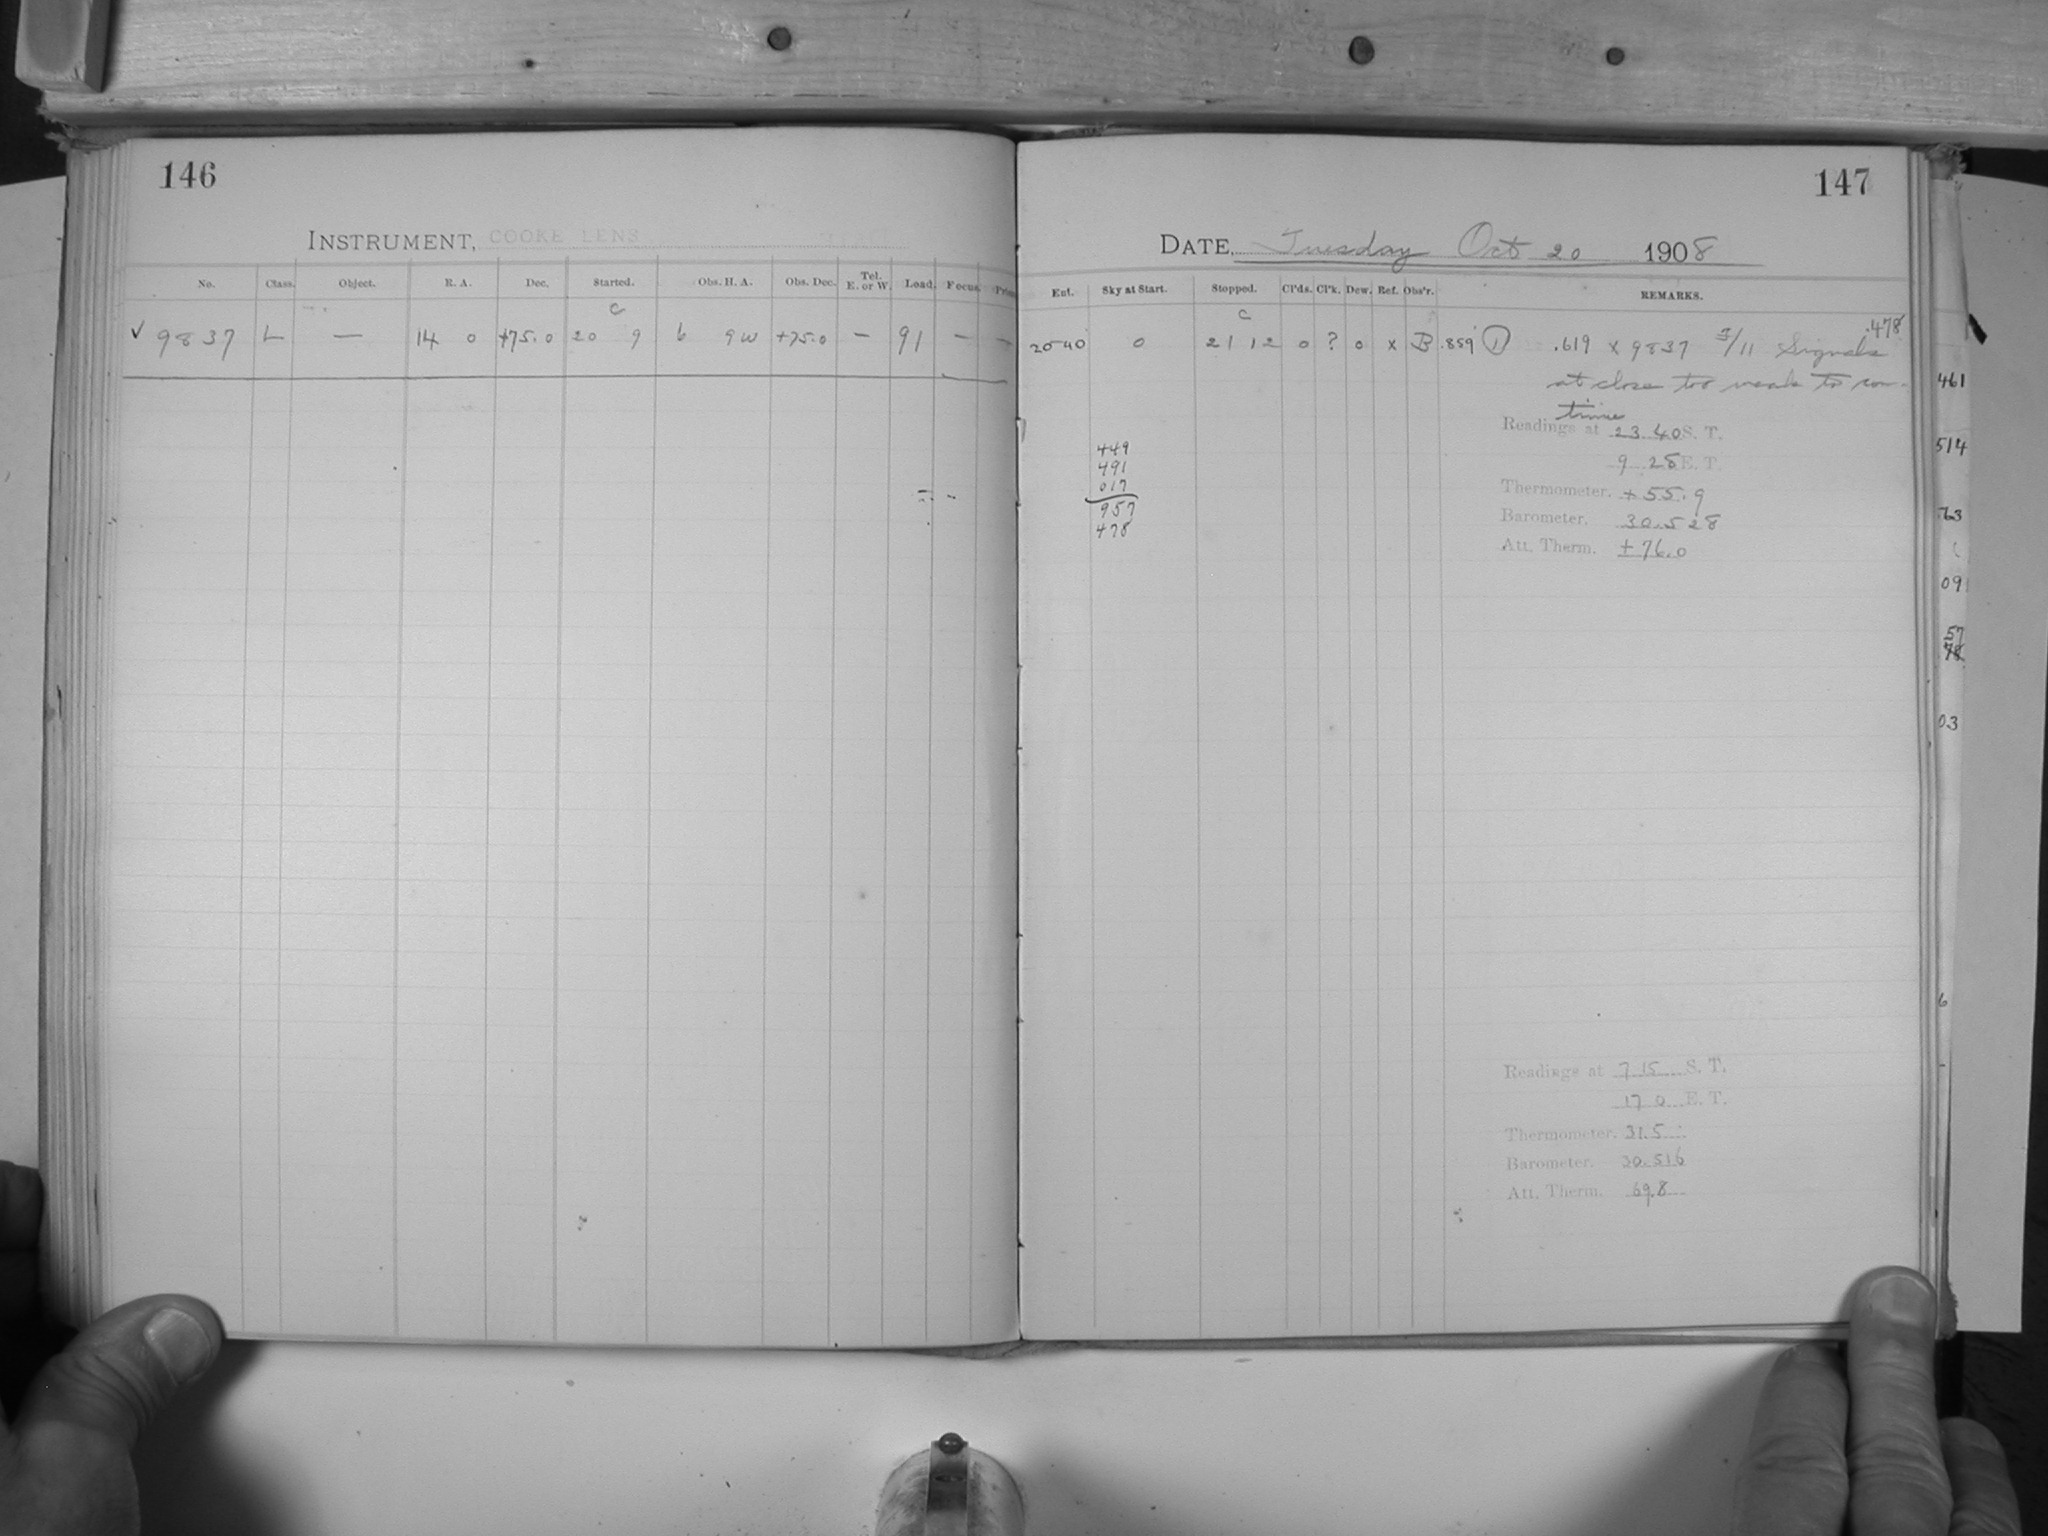 146
INSTRUMENT, COOKE LENS
No. Class. Object. R. A. Dec. Started. Obs. H. A. Obs. Dec. Tel. E. or W. Load. Focus.
c
✓ 9837 L — 14 0 +75.0 20 9 6 9 W +75.0 — 91 — —
147
DATE, Tuesday Oct 20 1908
Ent. Sky at Start. Stopped. Cl'ds. Cl'k. Dew. Ref. Obs'r. REMARKS.
c
.478
20 40 0 21 12 0 ? 0 x B .859 ① .619 x 9837 3/11 Signals
at close too weak to con-
tinue
Readings at 23 40 S. T.
9 28 E. T.
Thermometer, +55.9
Barometer, 30.528
Att. Therm. ±76.0
449
491
017
957
478
Readings at 7 15 S. T.
17 0 E. T.
Thermometer, 31.5
Barometer, 30.516
Att. Therm. 69.8
461
514
63
09
57
78
03
6